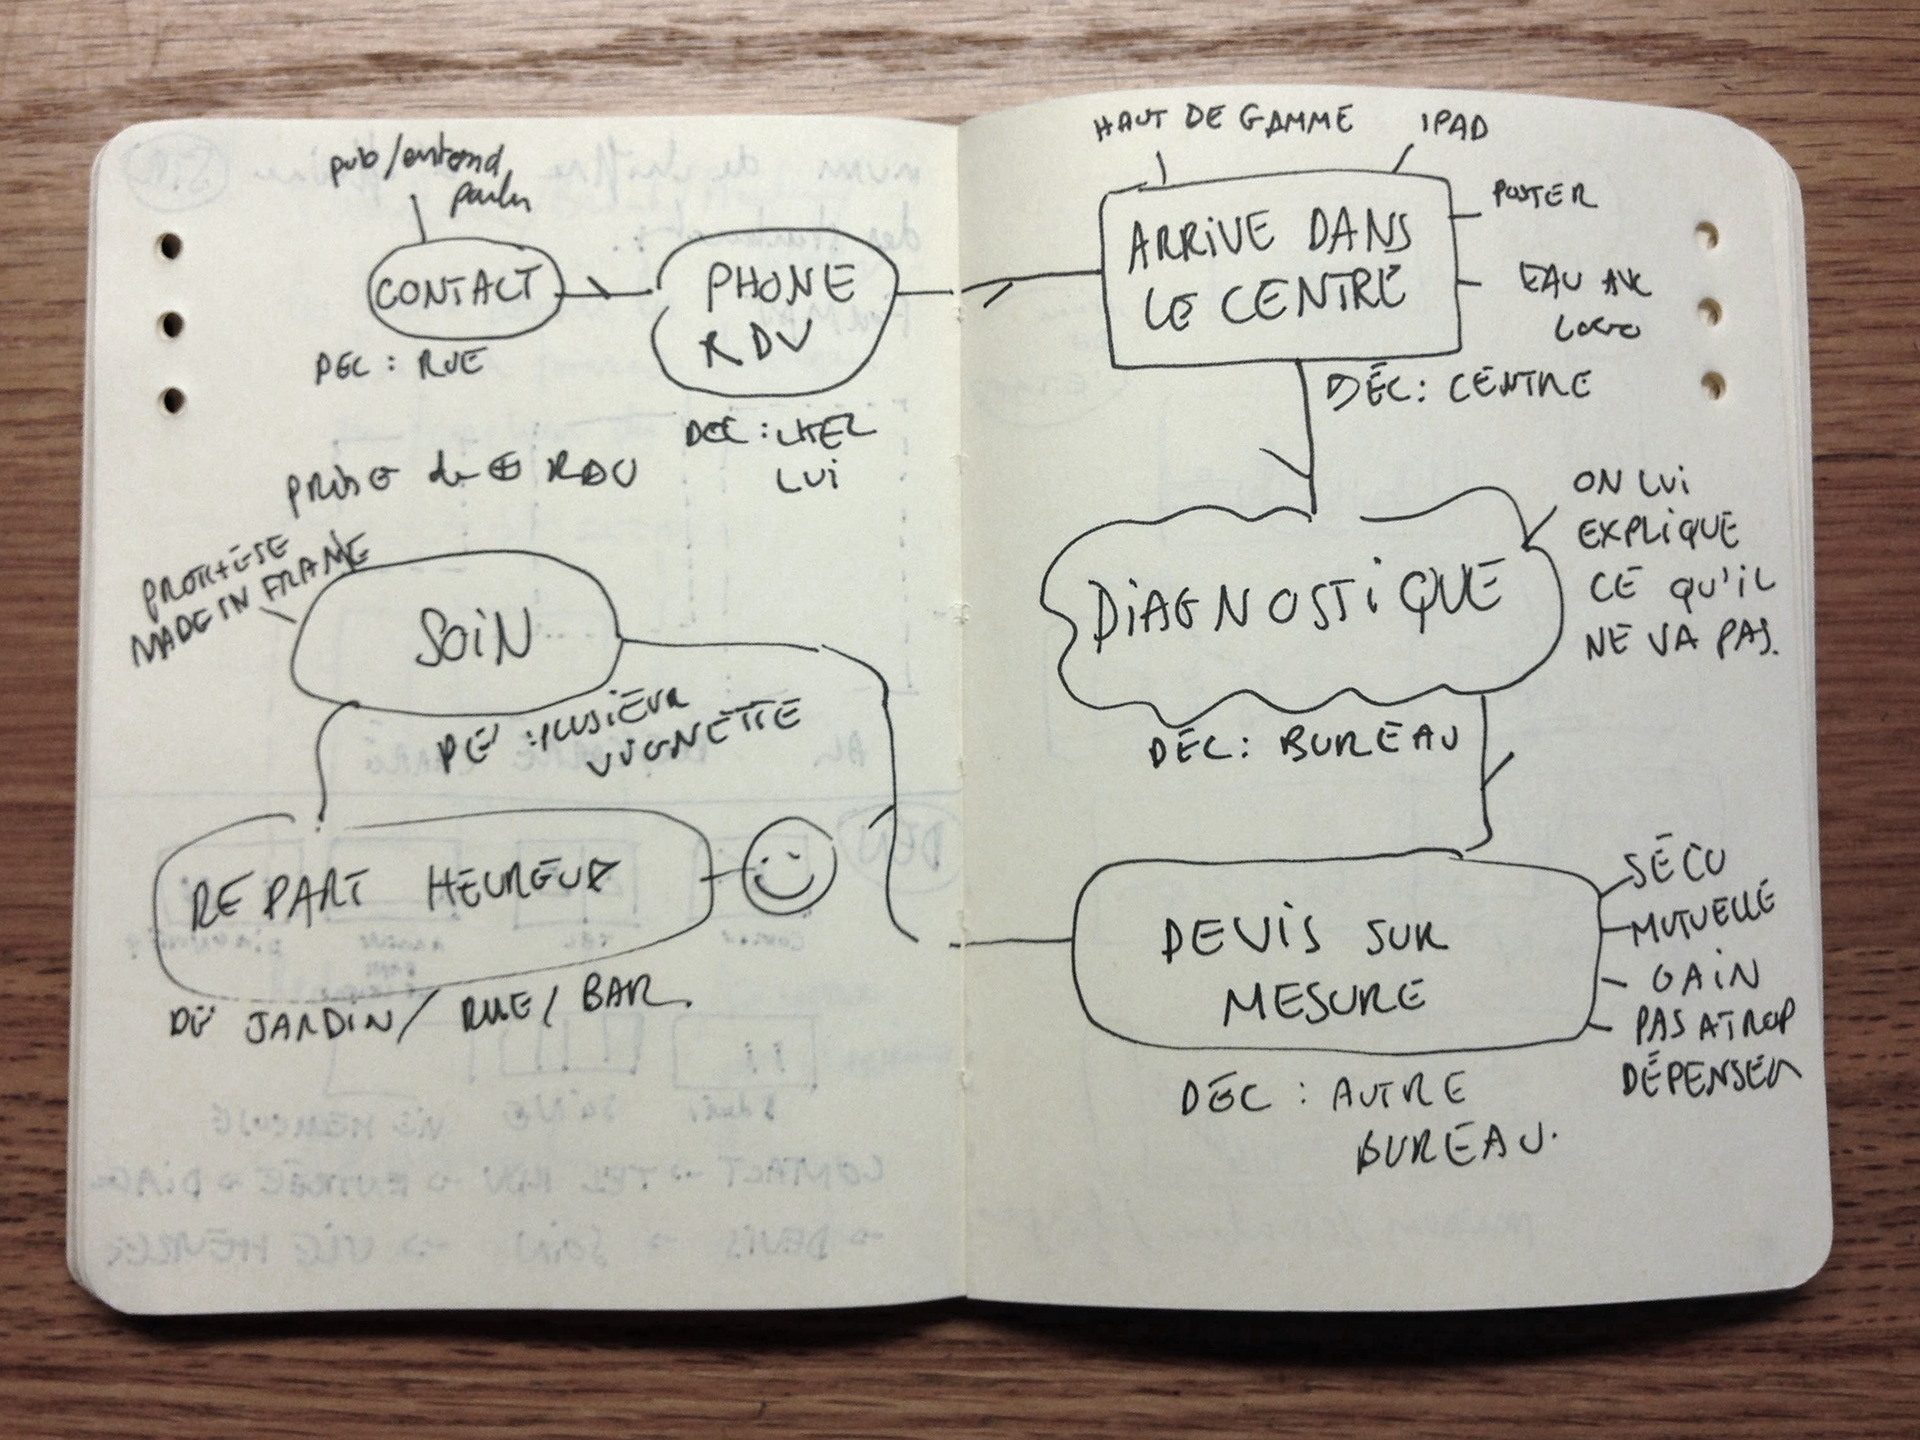 pub/entend
parler
CONTACT
DEC : RUE
PHONE
RDV
DEC : CHEZ
LUI
HAUT DE GAMME
IPAD
ARRIVE DANS
LE CENTRE
POSTER
EAU AVC
LOGO
DÉC : CENTRE
DIAGNOSTIQUE
ON LUI
EXPLIQUE
CE QU'IL
NE VA PAS.
DÉC : BUREAU
DEVIS SUR
MESURE
SÉCU
MUTUELLE
GAIN
PAS A TROP
DÉPENSER
DÉC : AUTRE
BUREAU.
prise de ⊕ RDV
PROTHÈSE
MADE IN FRANCE
SOIN
DE : PLUSIEUR
VIGNETTE
REPART HEUREUX
DE JARDIN / RUE / BAR.
CONTACT → TEL RDV → ENTRÉE → DIAG
→ DEVIS → SOIN → VIE HEUREUSE